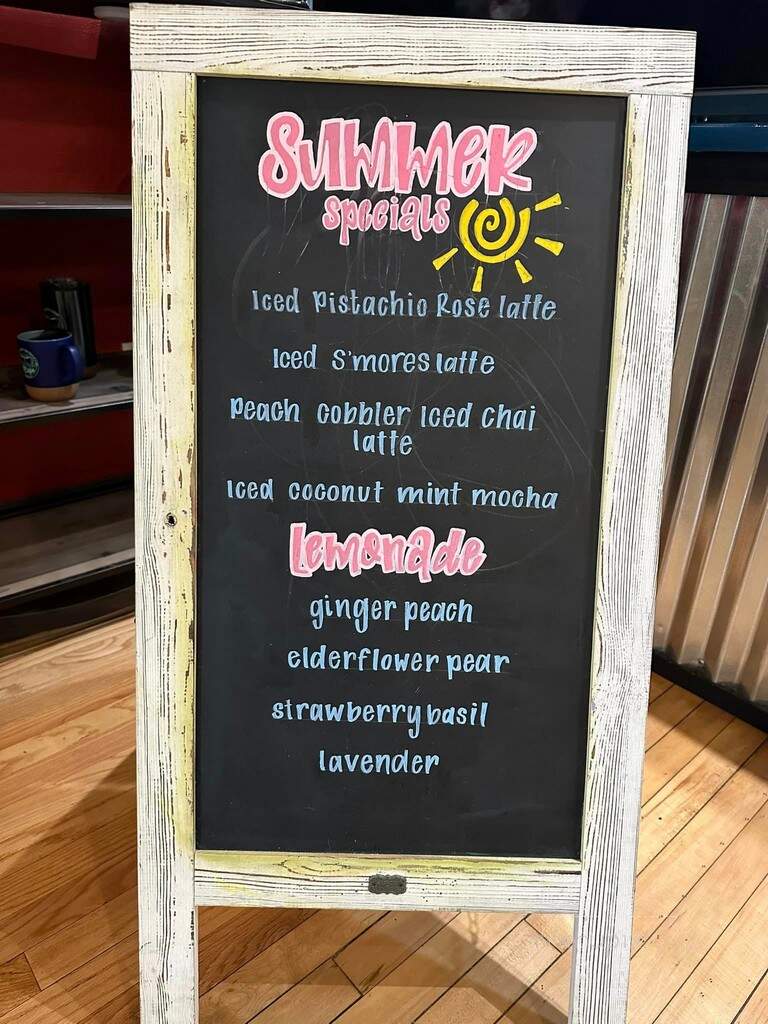 Summer
specials
Iced Pistachio Rose latte
Iced S'mores latte
Peach cobbler Iced chai
latte
Iced coconut mint mocha
Lemonade
ginger peach
elderflower pear
strawberry basil
lavender